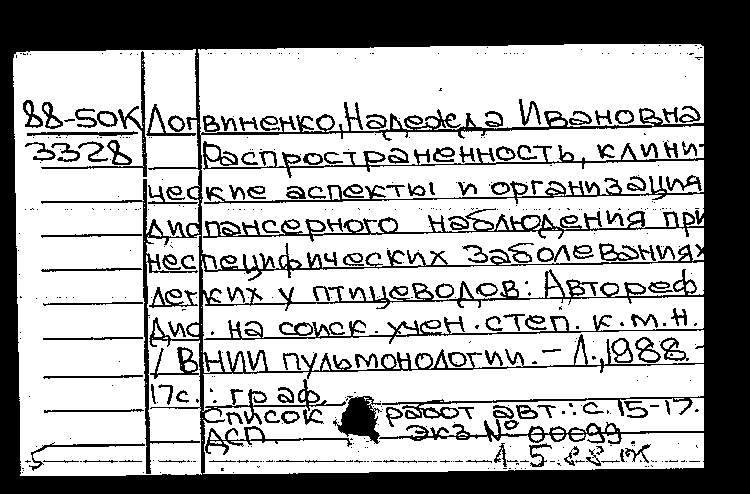 88-50К Логвиненко, Надежда Ивановна
3328 Распространенность, клини-
ческие аспекты и организация
диспансерного наблюдения при
неспецифических заболеваниях
легких у птицеводов: Автореф.
дис. на соиск. учен. степ. к.м.н.
/ ВНИИ пульмонологии. – Л., 1988. –
17с. : граф.
Список работ авт.: с. 15-17.
ДСП. Экз. № 00099.
5